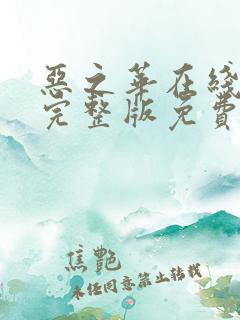 惡之華在綫
完整版免費
焦艷
未经同意禁止转载